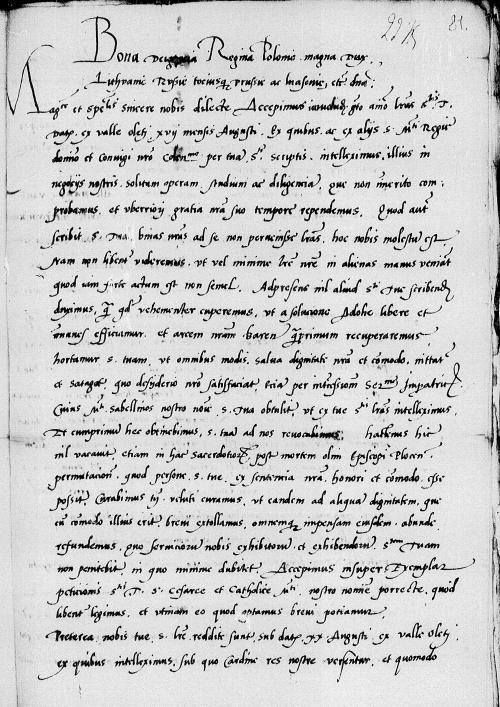 22 81.
Bona Dei gratia Regina Polonie magna Dux
Lithvanie Rvssie tociusq prvssie ac masouie, etc dna
Magce et spelis sincere nobis dilecte Accepimus amo lras stis T.
Datas ex valle oleti xvij mensis Augusti. Ex quibus ac ex alijs S. Mti Regie
domino et Coniugi nro Colenmo per tua stm scriptis. intelleximus, illius in
negotijs nostris solitam operam studium ac diligencia, que non inmerito com,
probamus, et vberiori gratia nra suo tempore rependemus. Quod aut
scribit s. tua binas nras ad se non peruenisse lras, hoc nobis molestu est
Nam non libent videremus, vt vel minime lre nre in alienas manus veniat
quod iam forte actum est non semel. Ad presens nil aliud sti Tue scribend
duximus, qd vehementer cuperemus, vt a solucione Adohe libere et
immunes efficiamur et arcem nram Baren qprimum recuperaremus
hortamur s. tuam, vt omnibus modis, salua dignitate nra et comodo, nittat
et satagat, quo desyderio nro satisfaciat, etia per Serml Imperatric
Cuius Mti sabellinos nostro noie s. Tua obtulit vt ex tue stis lris intelleximus.
Et cumprimu hec obtinebimus, s. tua ad nos reuocabimus hactenus hic
nil vacauit etiam in hac post mortem olim Episcopi Plocen
permutacion, quod persone s. tue, ex sentencia nra, honori et comodo esse
possit. Curabimus tn veluti curamus, vt tandem ad aliqua dignitatem, que
cu comodo illius erit breui extollamus, omnemq impensam eiusdem abunde
refundemus, quo seruicioru nobis exhibitoru et exhibendoru stem Tuam
non penitebit in quo minime dubitet. Accepimus insuper Exemplar
peticionis stis T. S. Cesaree et Catholice Mti. nostro nomine porrecte, quod
libent legimus, et vtinam eo quod optamus breui potiamur.
Preterea nobis tue s. lre reddite sunt sub data xx Augusti ex valle Oleti
ex quibus intelleximus, sub quo Cardine res nostre versentur, et quomodo